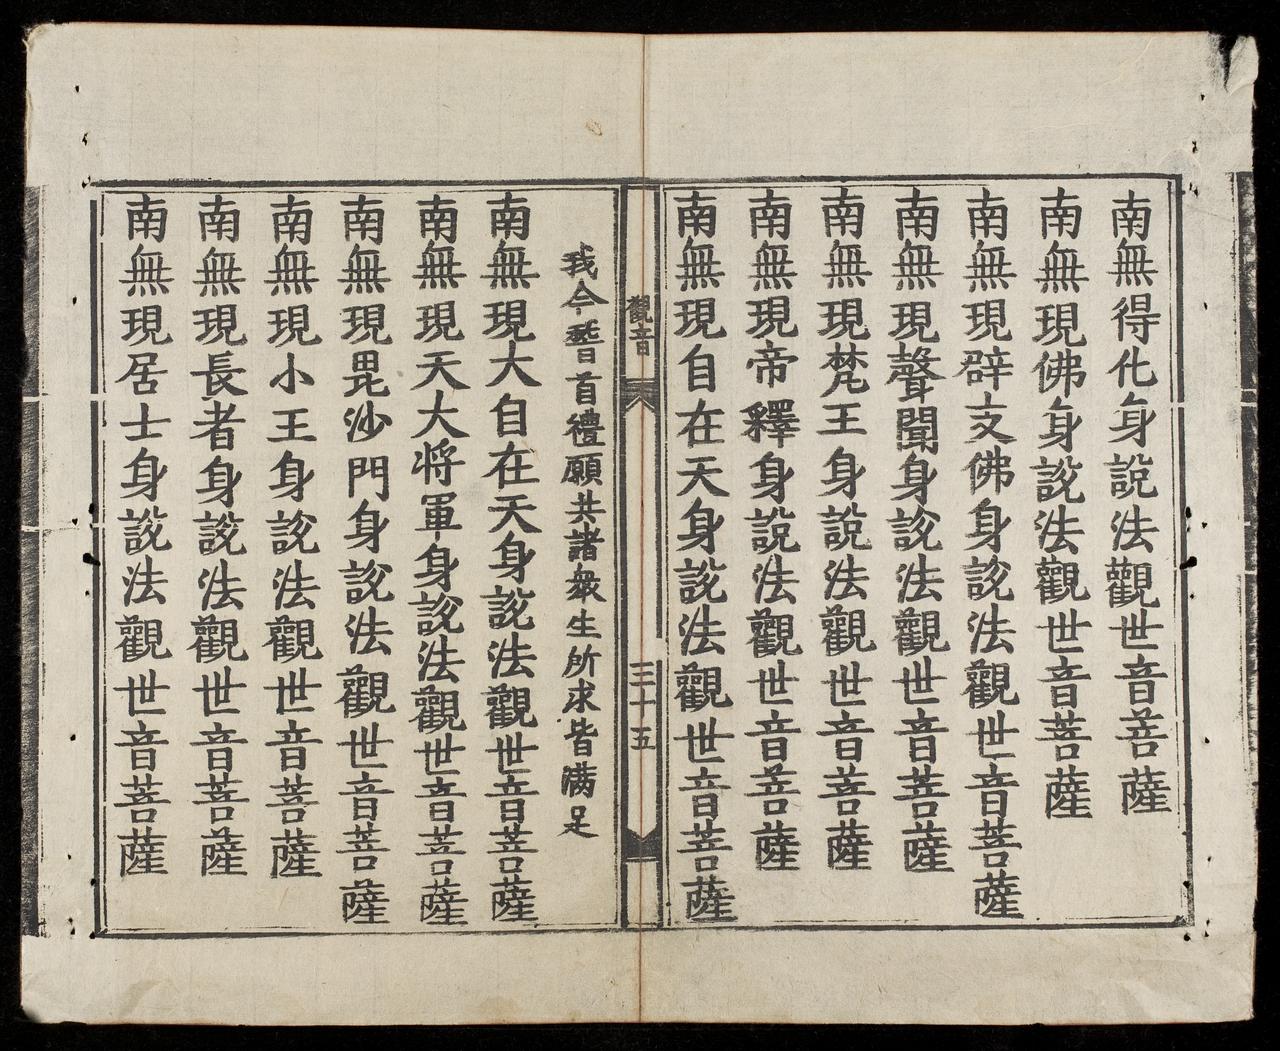 南無得化身說法觀世音菩薩
南無現佛身說法觀世音菩薩
南無現辟支佛身說法觀世音菩薩
南無現聲聞身說法觀世音菩薩
南無現梵王身說法觀世音菩薩
南無現帝釋身說法觀世音菩薩
南無現自在天身說法觀世音菩薩
觀音
三十五
我今𥡳首禮願共諸衆生所求皆滿足
南無現大自在天身說法觀世音菩薩
南無現天大将軍身說法觀世音菩薩
南無現毘沙門身說法觀世音菩薩
南無現小王身說法觀世音菩薩
南無現長者身說法觀世音菩薩
南無現居士身說法觀世音菩薩